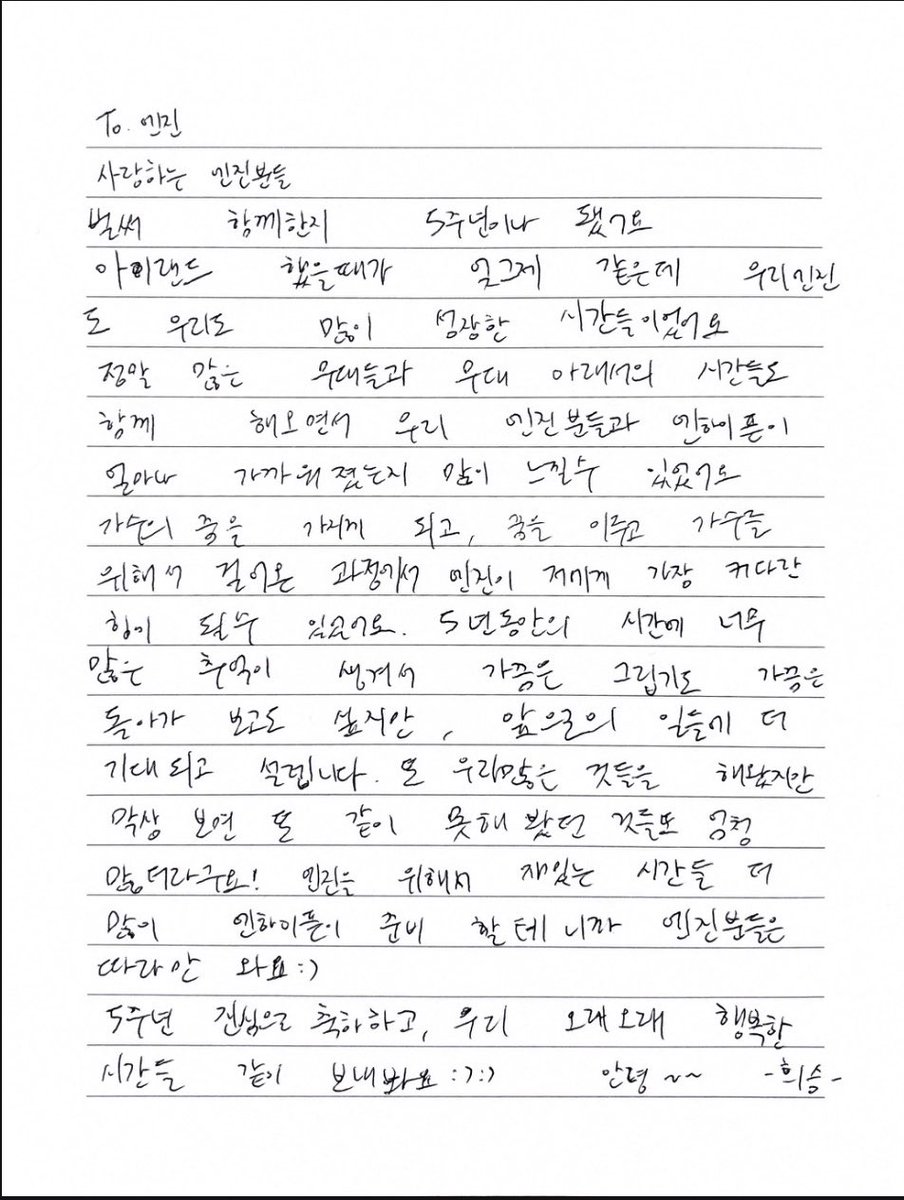 To. 엔진
사랑하는 엔진분들
벌써 함께한지 5주년이나 됐어요
아이랜드 했을때가 엊그제 같은데 우리엔진
도 우리도 많이 성장한 시간들이었어요
정말 많은 무대들과 무대 아래서의 시간들도
함께 해오면서 우리 엔진분들과 엔하이픈이
얼마나 가까워졌는지 많이 느낄수 있었어요
가수의 꿈을 가지게 되고, 꿈을 이루고 가수를
위해서 걸어온 과정에서 엔진이 저에게 가장 커다란
힘이 될수 있었어요. 5년동안의 시간에 너무
많은 추억이 생겨서 가끔은 그립기도 가끔은
돌아가 보고도 싶지만, 앞으로의 일들에 더
기대되고 설렙니다. 또 우리많은 것들을 해왔지만
막상 보면 또 같이 못해 봤던 것들또 엄청
많더라구요! 엔진을 위해서 재밌는 시간들 더
많이 엔하이픈이 준비 할테니까 엔진분들은
따라만 와요:)
5주년 진심으로 축하하고, 우리 오래오래 행복한
시간들 같이 보내봐요:):) 안녕~~ -희승-